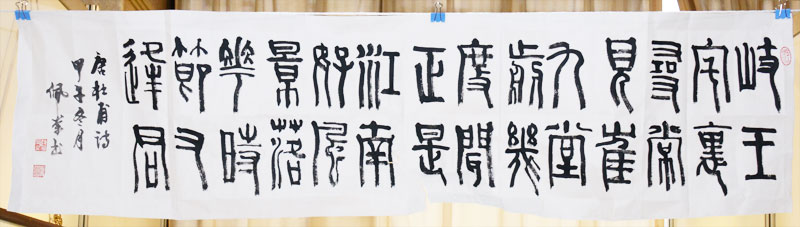 岐王
宅裏
尋常
見崔
九堂
前幾
度聞
正是
江南
好風
景落
華時
節又
逢君
唐杜甫詩
甲午冬月
佩